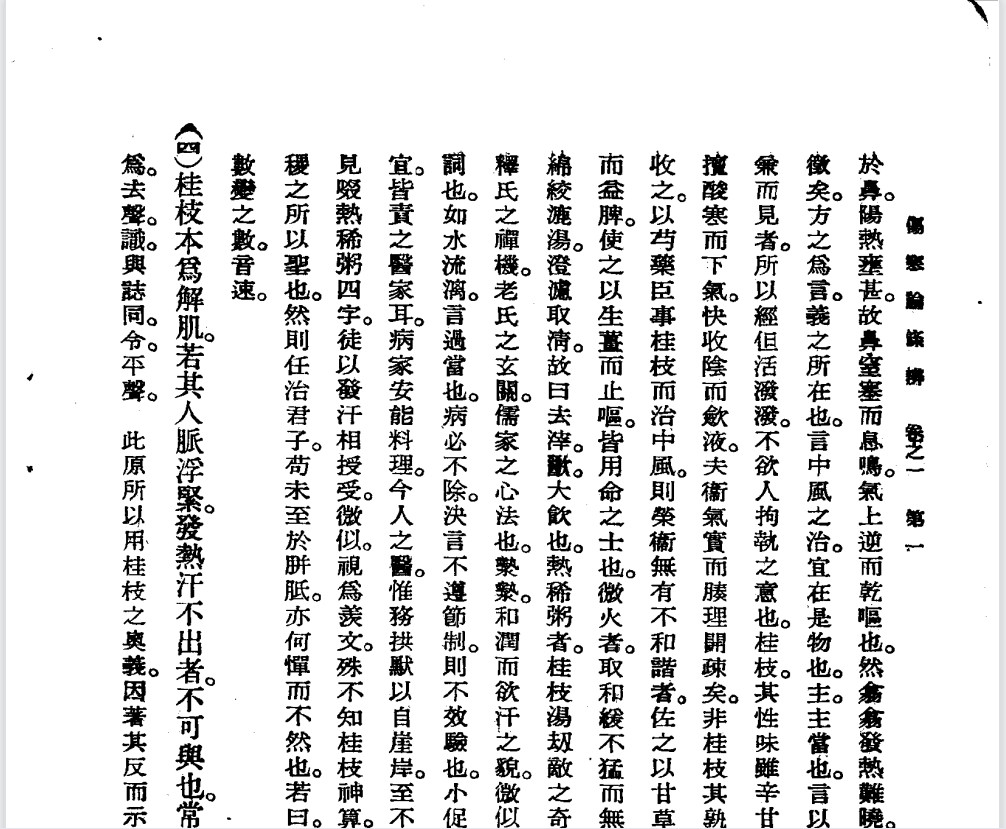 傷寒論條辨　卷之一　第一
於鼻。陽熱壅甚。故鼻窒塞而息鳴。氣上逆而乾嘔也。然翕翕發熱難曉。
徵矣。方之爲言。義之所在也。言中風之治。宜在是物也。主。主當也。言以
兼而見者。所以經但活潑潑。不欲人拘執之意也。桂枝。其性味雖辛甘
擅酸寒而下氣。快收陰而歛液。夫衞氣實而腠理開疎矣。非桂枝其孰
收之。以芍藥臣事桂枝而治中風。則榮衞無有不和諧者。佐之以甘草
而益脾。使之以生薑而止嘔。皆用命之士也。微火者。取和緩不猛而無
綿絞漉湯。澄濾取淸。故曰去滓。歠。大飲也。熱稀粥者。桂枝湯刼敵之奇
釋氏之禪機。老氏之玄關。儒家之心法也。漐漐。和潤而欲汗之貌。微似
詞也。如水流漓。言過當也。病必不除。決言不遵節制。則不效驗也。小促
宜。皆責之醫家耳。病家安能料理。今人之醫。惟務拱默以自崖岸。至不
見啜熱稀粥四字。徒以發汗相授受。微似。視爲羨文。殊不知桂枝神算。
稷之所以聖也。然則任治君子。苟未至於胼胝。亦何憚而不然也。若曰。
數變之數。音速。
(四)桂枝本爲解肌。若其人脈浮緊。發熱汗不出者。不可與也。常
爲。去聲。識。與誌同。令。平聲。　此原所以用桂枝之奧義。因著其反而示